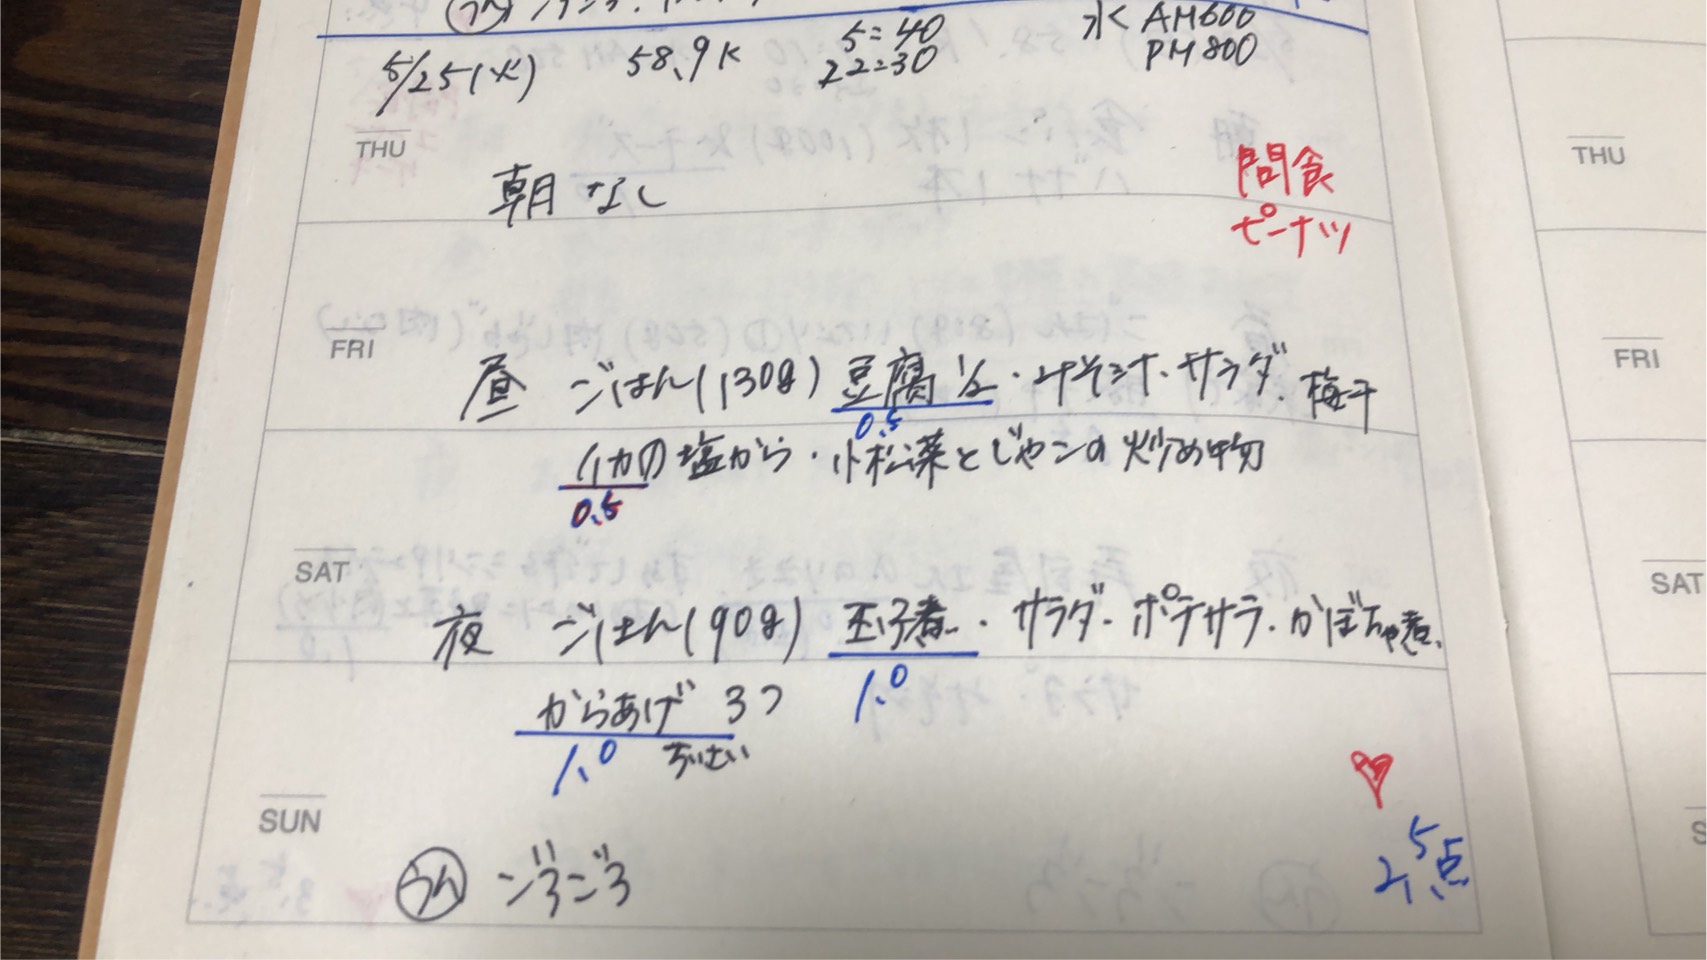 5/25(火) 58.9K 5=40 水 AM600
22=30 PM800
THU
朝 なし 間食
ピーナツ
FRI
昼 ごはん(130g) 豆腐1/2・みそ汁・サラダ・梅干
0.5
イカの塩から・小松菜とじゃこの炒め物
0.5
SAT
夜 ごはん(90g) 玉子煮・サラダ・ポテサラ・かぼちゃ煮、
1.0
からあげ 3つ
1.0 ちいさい
SUN
ごろごろ
2.5点
THU
FRI
SAT
S